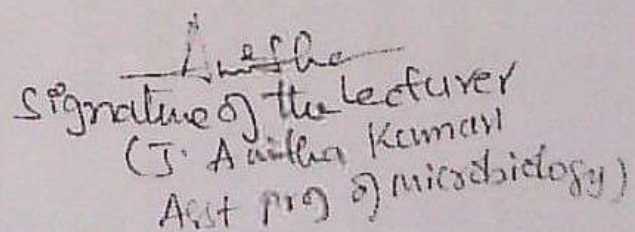 Anitha
Signature of the Lecturer
(J. Anitha Kumari
Asst prof of microbiology)